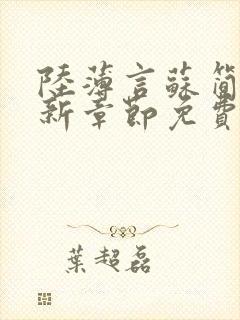 陸薄言蘇簡
新章節免費
葉超磊